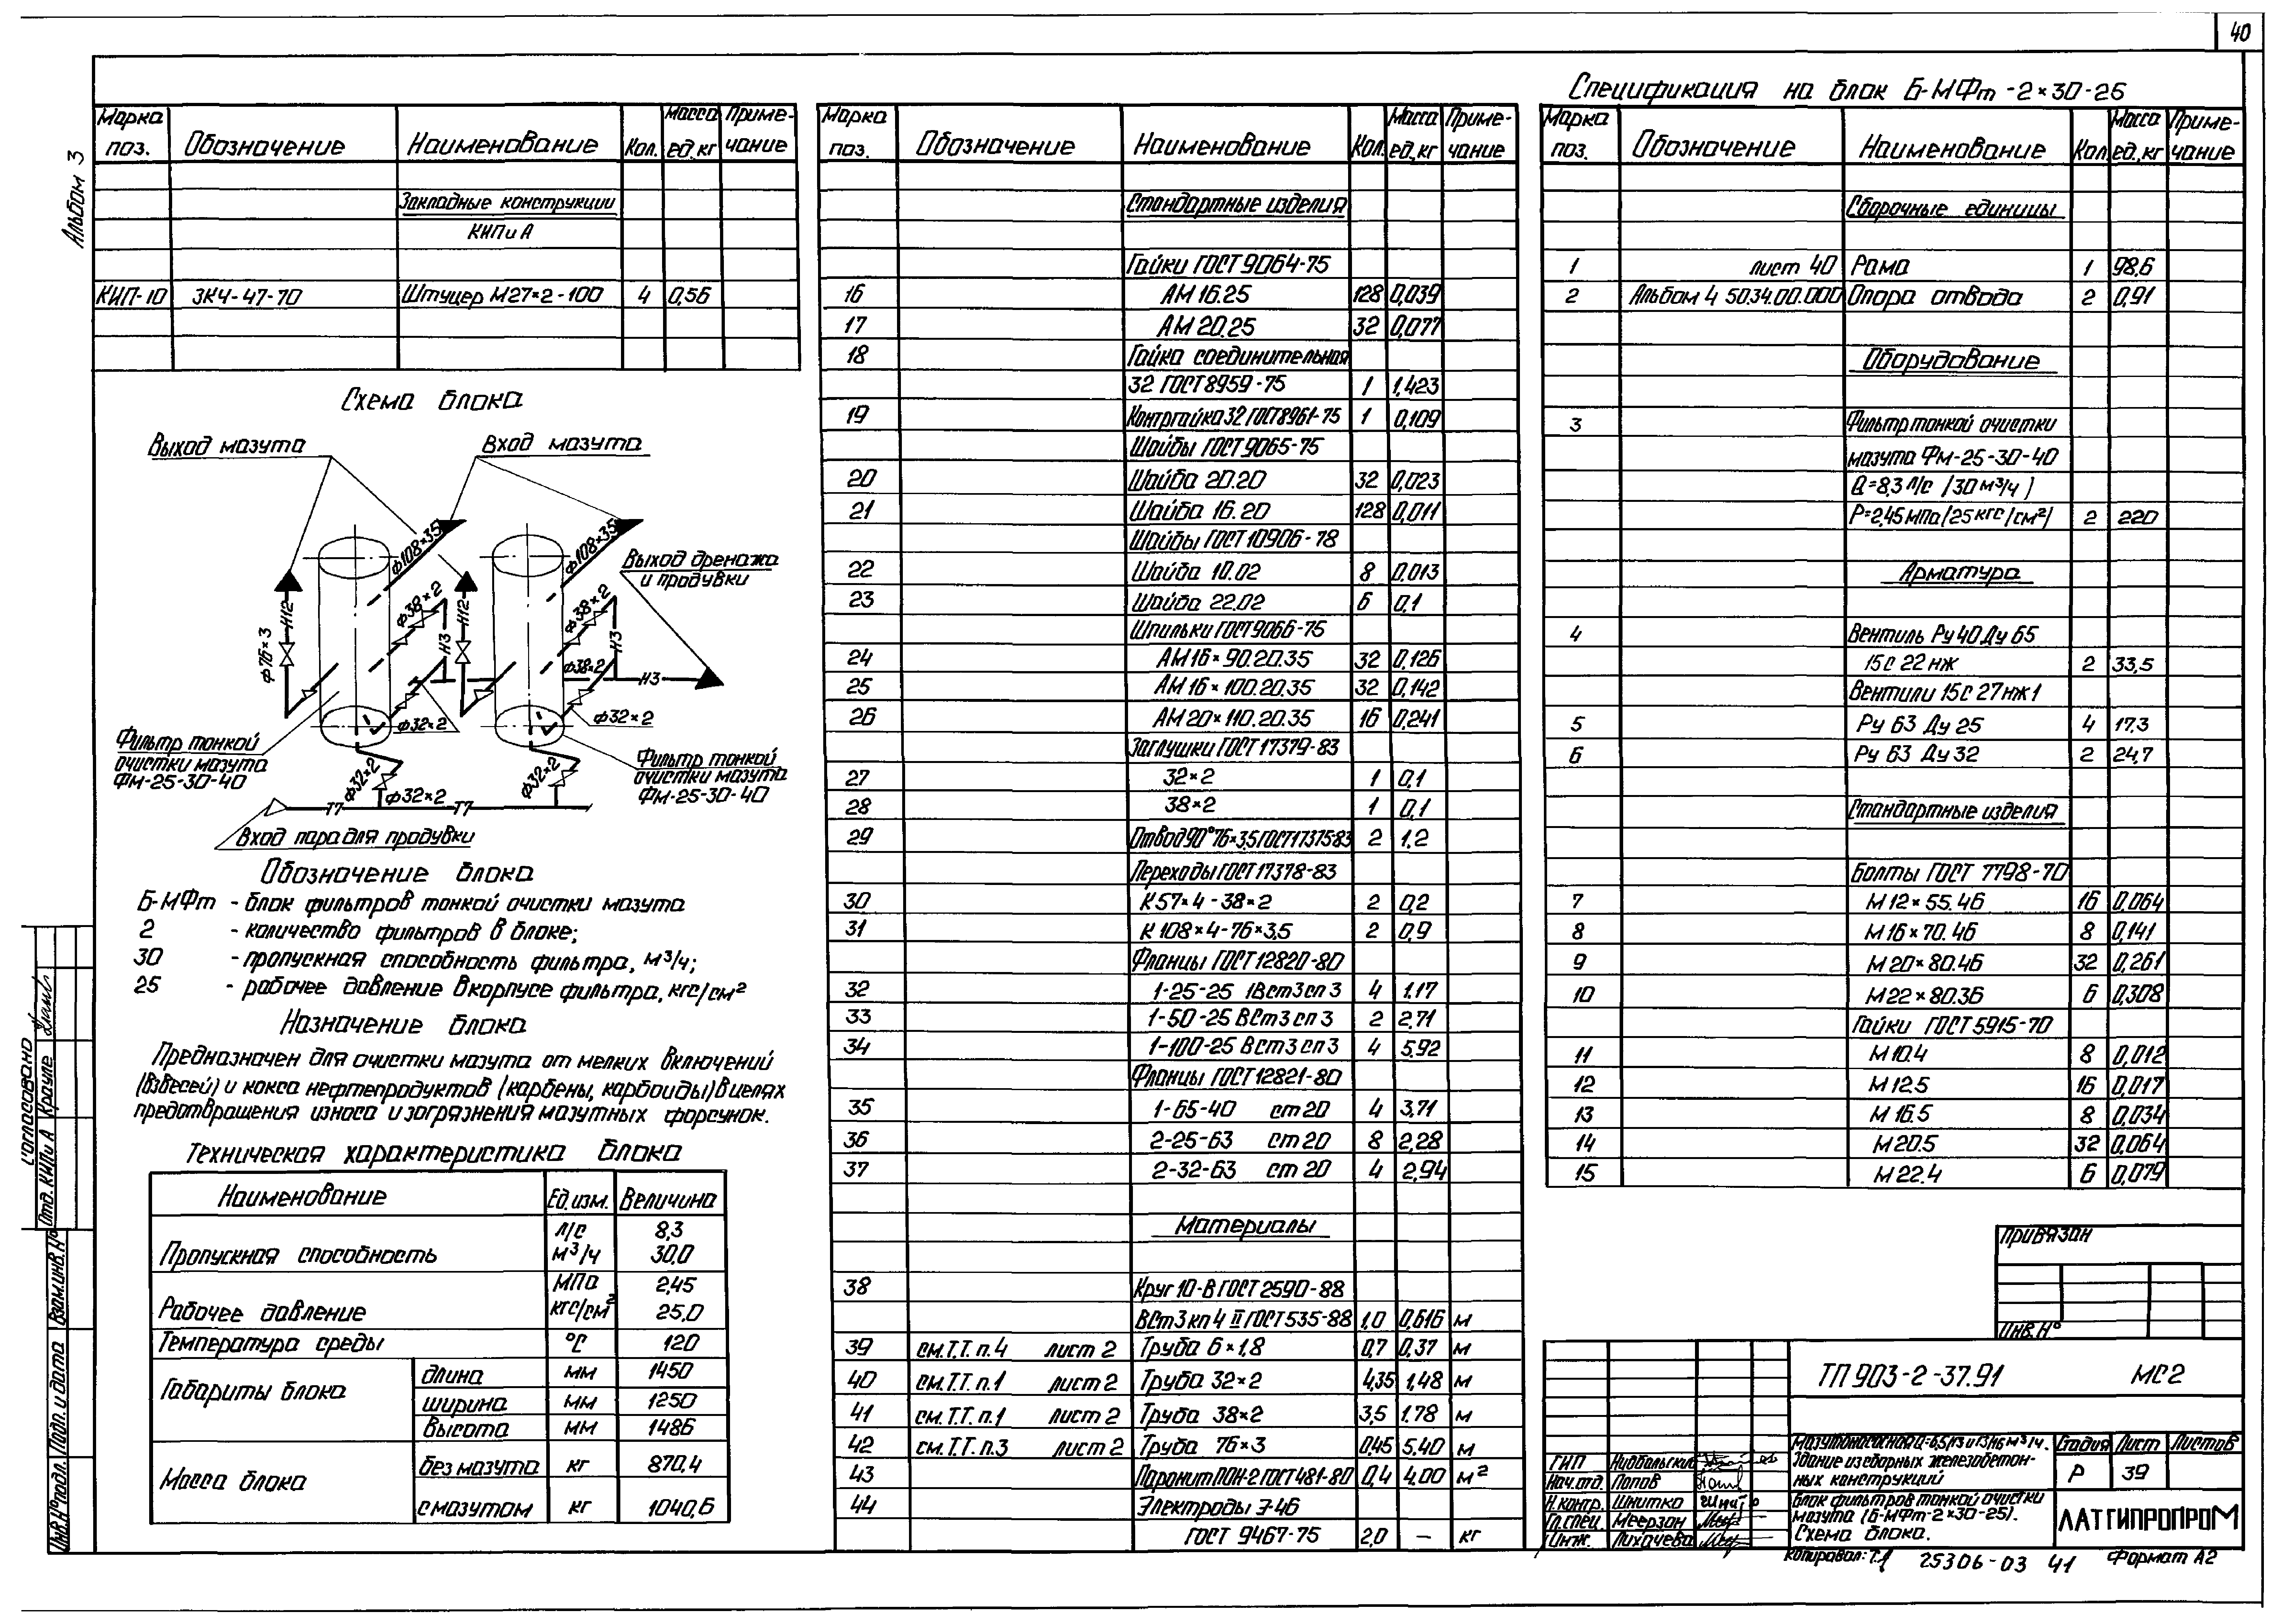 40
Альбом 3
Спецификация на блок Б-МФт-2×30-25
Марка поз. Обозначение Наименование Кол. Масса ед.кг Примечание
Закладные конструкции
КИП и А
КИП-10 ЗК4-47-70 Штуцер М27×2-100 4 0,56
Схема блока
Выход мазута
Вход мазута
ф108×3,5
ф108×3,5
Выход дренажа
и продувки
ф38×2
ф38×2
Н12
Н12
Н3
Н3
ф76×3
ф38×2
Н3
ф32×2
ф32×2
Фильтр тонкой
очистки мазута
Фм-25-30-40
Фильтр тонкой
очистки мазута
Фм-25-30-40
ф32×2
ф32×2
ф32×2
Т7
Т7
Вход пара для продувки
Обозначение блока
Б-МФт - блок фильтров тонкой очистки мазута
2 - количество фильтров в блоке;
30 - пропускная способность фильтра, м³/ч;
25 - рабочее давление в корпусе фильтра, кгс/см²
Назначение блока
Предназначен для очистки мазута от мелких включений
(взвесей) и кокса нефтепродуктов (карбены, карбоиды) в целях
предотвращения износа и загрязнения мазутных форсунок.
Техническая характеристика блока
Наименование Ед.изм. Величина
л/с 8,3
Пропускная способность м³/ч 30,0
МПа 2,45
Рабочее давление кгс/см² 25,0
Температура среды °С 120
Габариты блока длина мм 1450
ширина мм 1250
высота мм 1486
Масса блока без мазута кг 870,4
с мазутом кг 1040,6
Марка поз. Обозначение Наименование Кол. Масса ед.кг Примечание
Стандартные изделия
Гайки ГОСТ 9064-75
16 АМ 16.25 128 0,039
17 АМ 20.25 32 0,077
18 Гайка соединительная
32 ГОСТ 8959-75 1 1,423
19 Контргайка 32 ГОСТ 8961-75 1 0,109
Шайбы ГОСТ 9065-75
20 Шайба 20.20 32 0,023
21 Шайба 16.20 128 0,011
Шайбы ГОСТ 10906-78
22 Шайба 10.02 8 0,013
23 Шайба 22.02 6 0,1
Шпильки ГОСТ 9066-75
24 АМ 16×90.20.35 32 0,126
25 АМ 16×100.20.35 32 0,142
26 АМ 20×110.20.35 16 0,241
Заглушки ГОСТ 17379-83
27 32×2 1 0,1
28 38×2 1 0,1
29 Отвод 90° 76×3,5 ГОСТ 17375-83 2 1,2
Переходы ГОСТ 17378-83
30 К 57×4-38×2 2 0,2
31 К 108×4-76×3,5 2 0,9
Фланцы ГОСТ 12820-80
32 1-25-25 1 Вст3сп3 4 1.17
33 1-50-25 Вст3сп3 2 2.71
34 1-100-25 Вст3сп3 4 5.92
Фланцы ГОСТ 12821-80
35 1-65-40 ст 20 4 3,71
36 2-25-63 ст 20 8 2,28
37 2-32-63 ст 20 4 2,94
Материалы
38 Круг 10-В ГОСТ 2590-88
ВСт3кп4 II ГОСТ 535-88 1,0 0,616 м
39 см.Т.Т. п.4 лист 2 Труба 6×1,8 0,7 0,37 м
40 см.Т.Т. п.1 лист 2 Труба 32×2 4,35 1,48 м
41 см.Т.Т. п.1 лист 2 Труба 38×2 3,5 1.78 м
42 см.Т.Т. п.3 лист 2 Труба 76×3 0,45 5.40 м
43 Паронит ПОН-2 ГОСТ 481-80 0,4 4.00 м²
44 Электроды Э-46
ГОСТ 9467-75 2,0 — кг
Марка поз. Обозначение Наименование Кол. Масса ед.кг Примечание
Сборочные единицы
1 лист 40 Рама 1 98,6
2 Альбом 4 5034.00.000 Опора отвода 2 0,91
Оборудование
3 Фильтр тонкой очистки
мазута Фм-25-30-40
Q=8,3 л/с /30 м³/ч)
Р=2,45 МПа /25 кгс/см²/ 2 220
Арматура
4 Вентиль Ру 40 Ду 65
15с 22 нж 2 33,5
Вентили 15с 27 нж 1
5 Ру 63 Ду 25 4 17.3
6 Ру 63 Ду 32 2 24,7
Стандартные изделия
Болты ГОСТ 7798-70
7 М 12×55.46 16 0.064
8 М 16×70.46 8 0,141
9 М 20×80.46 32 0,261
10 М 22×80.36 6 0,308
Гайки ГОСТ 5915-70
11 М 10.4 8 0,012
12 М 12.5 16 0,017
13 М 16.5 8 0,034
14 М 20.5 32 0,064
15 М 22.4 6 0,079
Привязан
Инв.№
ТП 903-2-37.91 МС2
Здание из сборных железобетон-
ных конструкций
Стадия Лист Листов
Р 39
Блок фильтров тонкой очистки
мазута (Б-МФт-2×30-25).
Схема блока.
ЛАТГИПРОПРОМ
ГИП
Нач.отд. Попов
Н.контр. Шнитко
Гл.спец. Меерзон
Инж. Лихачева
Копировал:
25306-03 41
Формат А2
Согласовано
Отд. КИПи А Крауле
Взам.инв.№
Подп. и дата
Инв.№ подл.